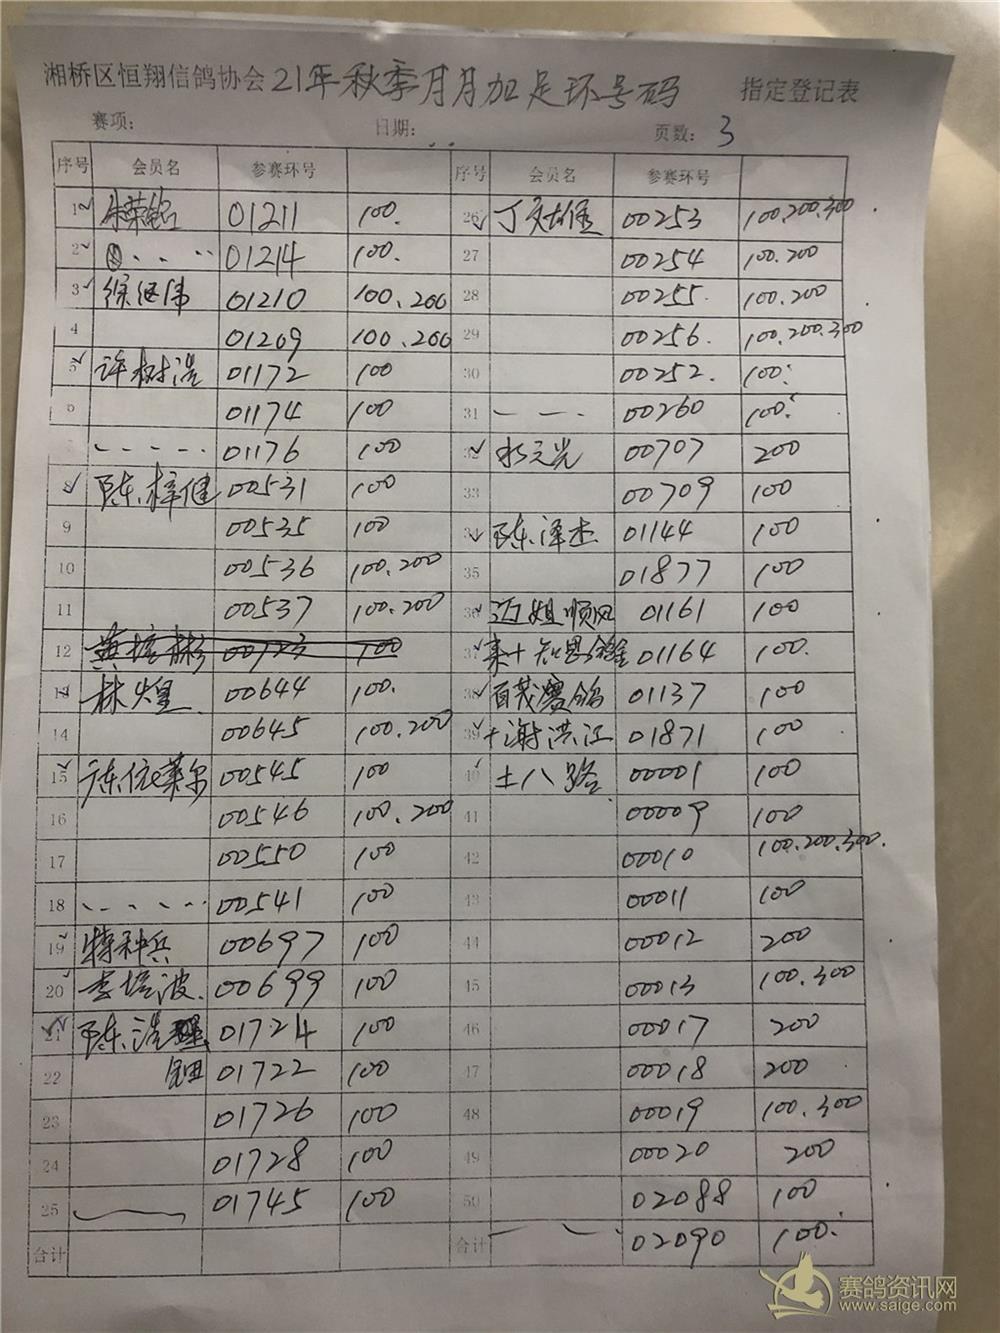 湘桥区恒翔信鸽协会 21年秋季月月加足环号码 指定登记表
赛项: 日期: 页数: 3
序号 会员名 参赛环号 序号 会员名 参赛环号
1 朱荣铭 01211 100. 26 00253 100.200.300
2 01214 100. 27 00254 100.200
3 徐继伟 01210 100.200 28 00255. 100.200
4 01209 100.200 29 00256. 100.200.300
5 许树浩 01172 100 30 00252. 100.
6 01174 100 31 00260 100.
01176 100 32 00707 200
8 陈梓健 00531 100 33 00709 100
9 00535 100 34 陈泽杰 01144 100
10 00536 100.200 35 01877 100
11 00537 100.200 36 顺风 01161 100
12 黄培彬 00723 100 37 01164 100.
13 林煌 00644 100. 38 百茂赛鸽 01137 100
14 00645 100.200 39 谢洪江 01871 100
15 00545 100 40 土八路 00001 100
16 00546 100.200 41 00009 100
17 00550 100 42 00010 100.200.300.
18 00541 100 43 00011 100
19 特种兵 00697 100 44 00012 200
20 李培波. 00699 100 45 00013 100.300
21 陈浩 01724 100 46 00017 200
22 钿 01722 100 47 00018 200
23 01726 100 48 00019 100.300
24 01728 100 49 00020 200
25 01745 100 50 02088 100
合计 合计 02090 100.
赛鸽资讯网
www.saige.com